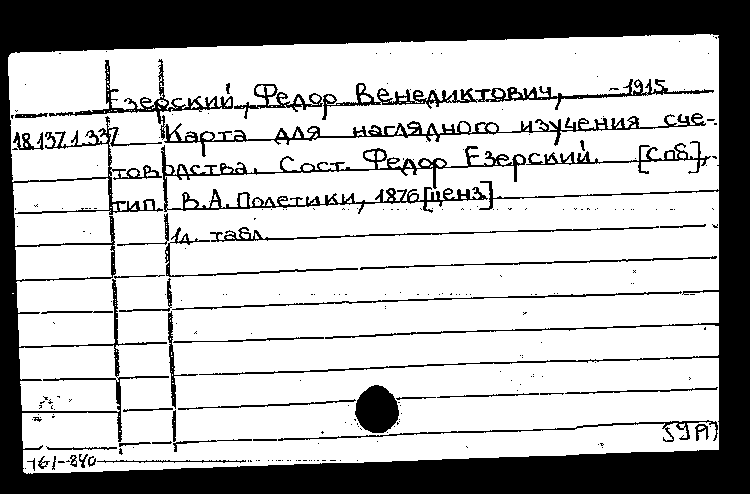 Езерский, Федор Венедиктович, -1915
18.137.1.337 Карта для наглядного изучения сче-
товодства. Сост. Федор Езерский. [Спб.],
тип. В.А. Полетики, 1876 [ценз].
1 л. табл.
161-840